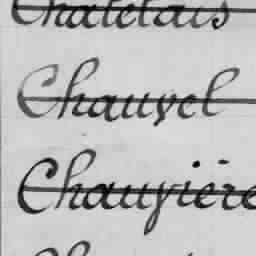 Chatelais
Chauvel
Chauvière